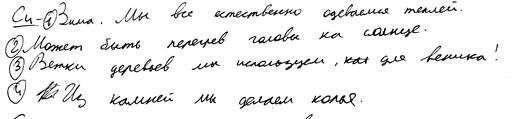 Си-① Зима. Мы все естественно одеваемся теплей.
② Может быть перегрев головы на солнце.
③ Ветки деревьев мы используем, как для веника!
④ Из камней мы делаем колья.